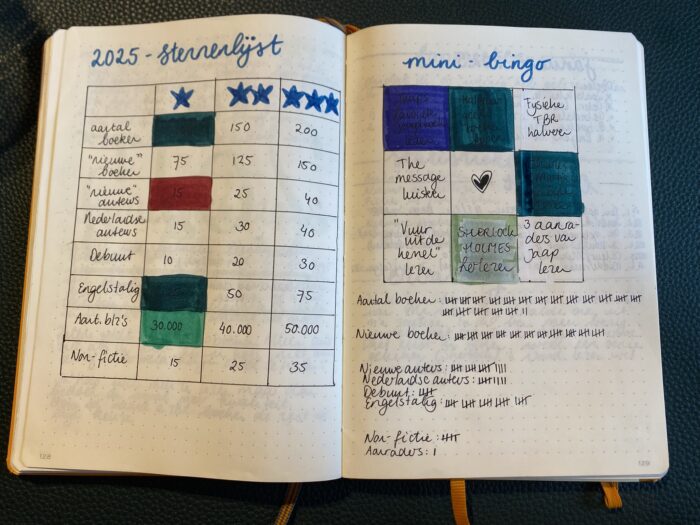 2025 - sterrenlijst
aantal boeken 150 200
"nieuwe" boeken 75 125 150
"nieuwe" auteurs 15 25 40
Nederlandse auteurs 15 30 40
Debuut 10 20 30
Engelstalig 50 75
Aant. blz's 30.000 40.000 50.000
Non-fictie 15 25 35
128
mini - bingo
Fysieke
TBR
halveren
The
message
luisteren
"Vuur
uit de
hemel"
lezen
SHERLOCK
HOLMES
herlezen
3 aanra-
ders van
Jaap
lezen
Aantal boeken:
Nieuwe boeken:
Nieuwe auteurs:
Nederlandse auteurs:
Debuut:
Engelstalig:
Non-fictie:
Aanraders:
129